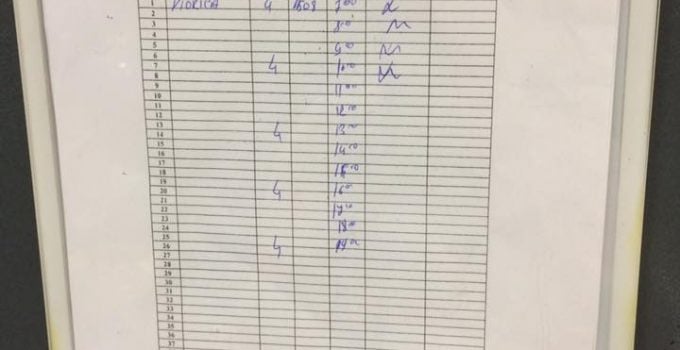 1 VIORICA 4 1508 7 00
2
3 8 00
4
5 9 00
6
7 4 10 00
8
9 11 00
10
11 12 00
12
13 4 13 00
14
15 14 00
16
17 15 00
18
19 4 16 00
20
21 17 00
22
23 18 00
24
25 4 19 00
26
27
28
29
30
31
32
33
34
35
36
37